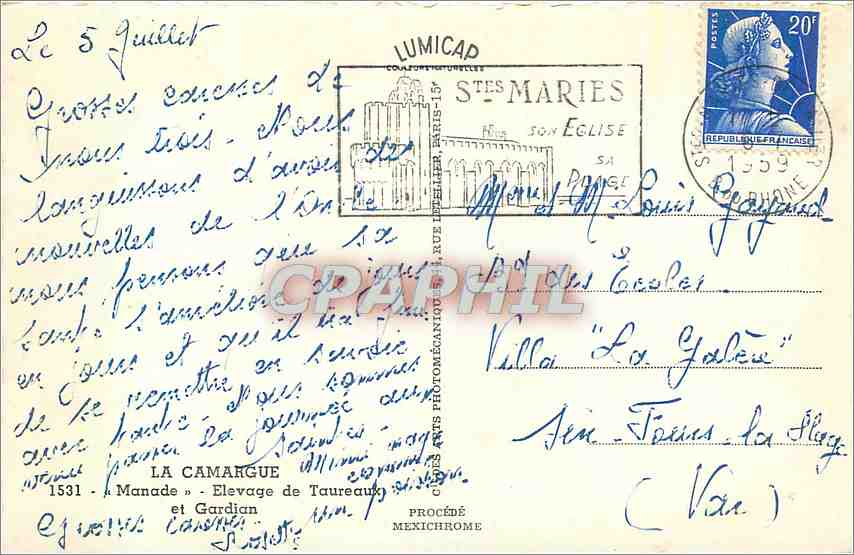 Le 5 Juillet
Grosses caresses de
nous trois. Nous
languissons d'avoir de
nouvelles de l'Oncle
nous pensons que sa
santé s'améliore de jour
en jour et qu'il va
de se remettre en
avec tante. Nous sommes
venus passer la journée aux
Saintes.
Mimi nage
comme
un poisson
Grosses caresses
LUMICAP
COULEURS NATURELLES
STES MARIES
SON EGLISE
SA
PLAGE
POSTES 20F
REPUBLIQUE FRANÇAISE
1959
B. DU RHONE
Mme et M. Louis
Bd des Ecoles
Villa "La Galère"
Six-Fours-la Plage
(Var)
CIE DES ARTS PHOTOMÉCANIQUES, 44, RUE LETELLIER, PARIS-15e
CPAPHIL
LA CAMARGUE
1531 - « Manade » - Elevage de Taureaux
et Gardian
PROCÉDÉ
MEXICHROME